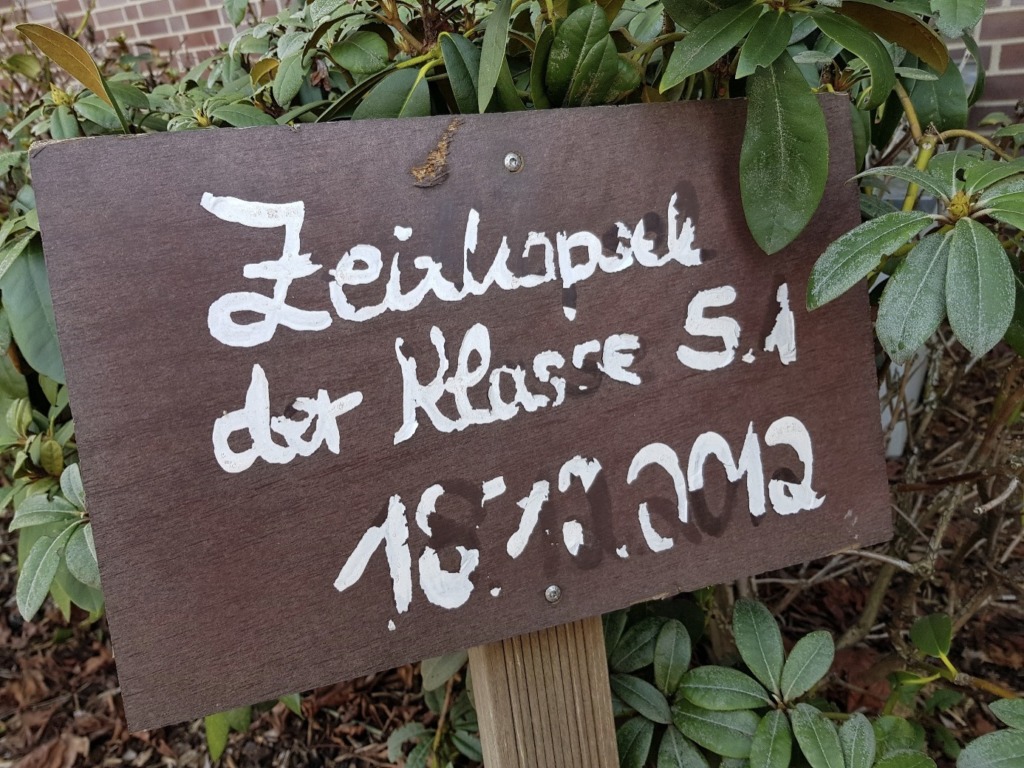 Zeitkapsel
der Klasse 5.1
18.12.2012